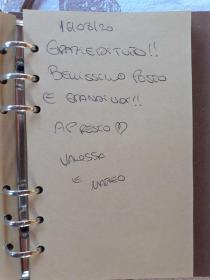 16/08/20
GRAZIE DI TUTTO!!
BELLISSIMO POSTO
E GRANDI VOI!!
A PRESTO ♡
VALESSA
E MATTEO